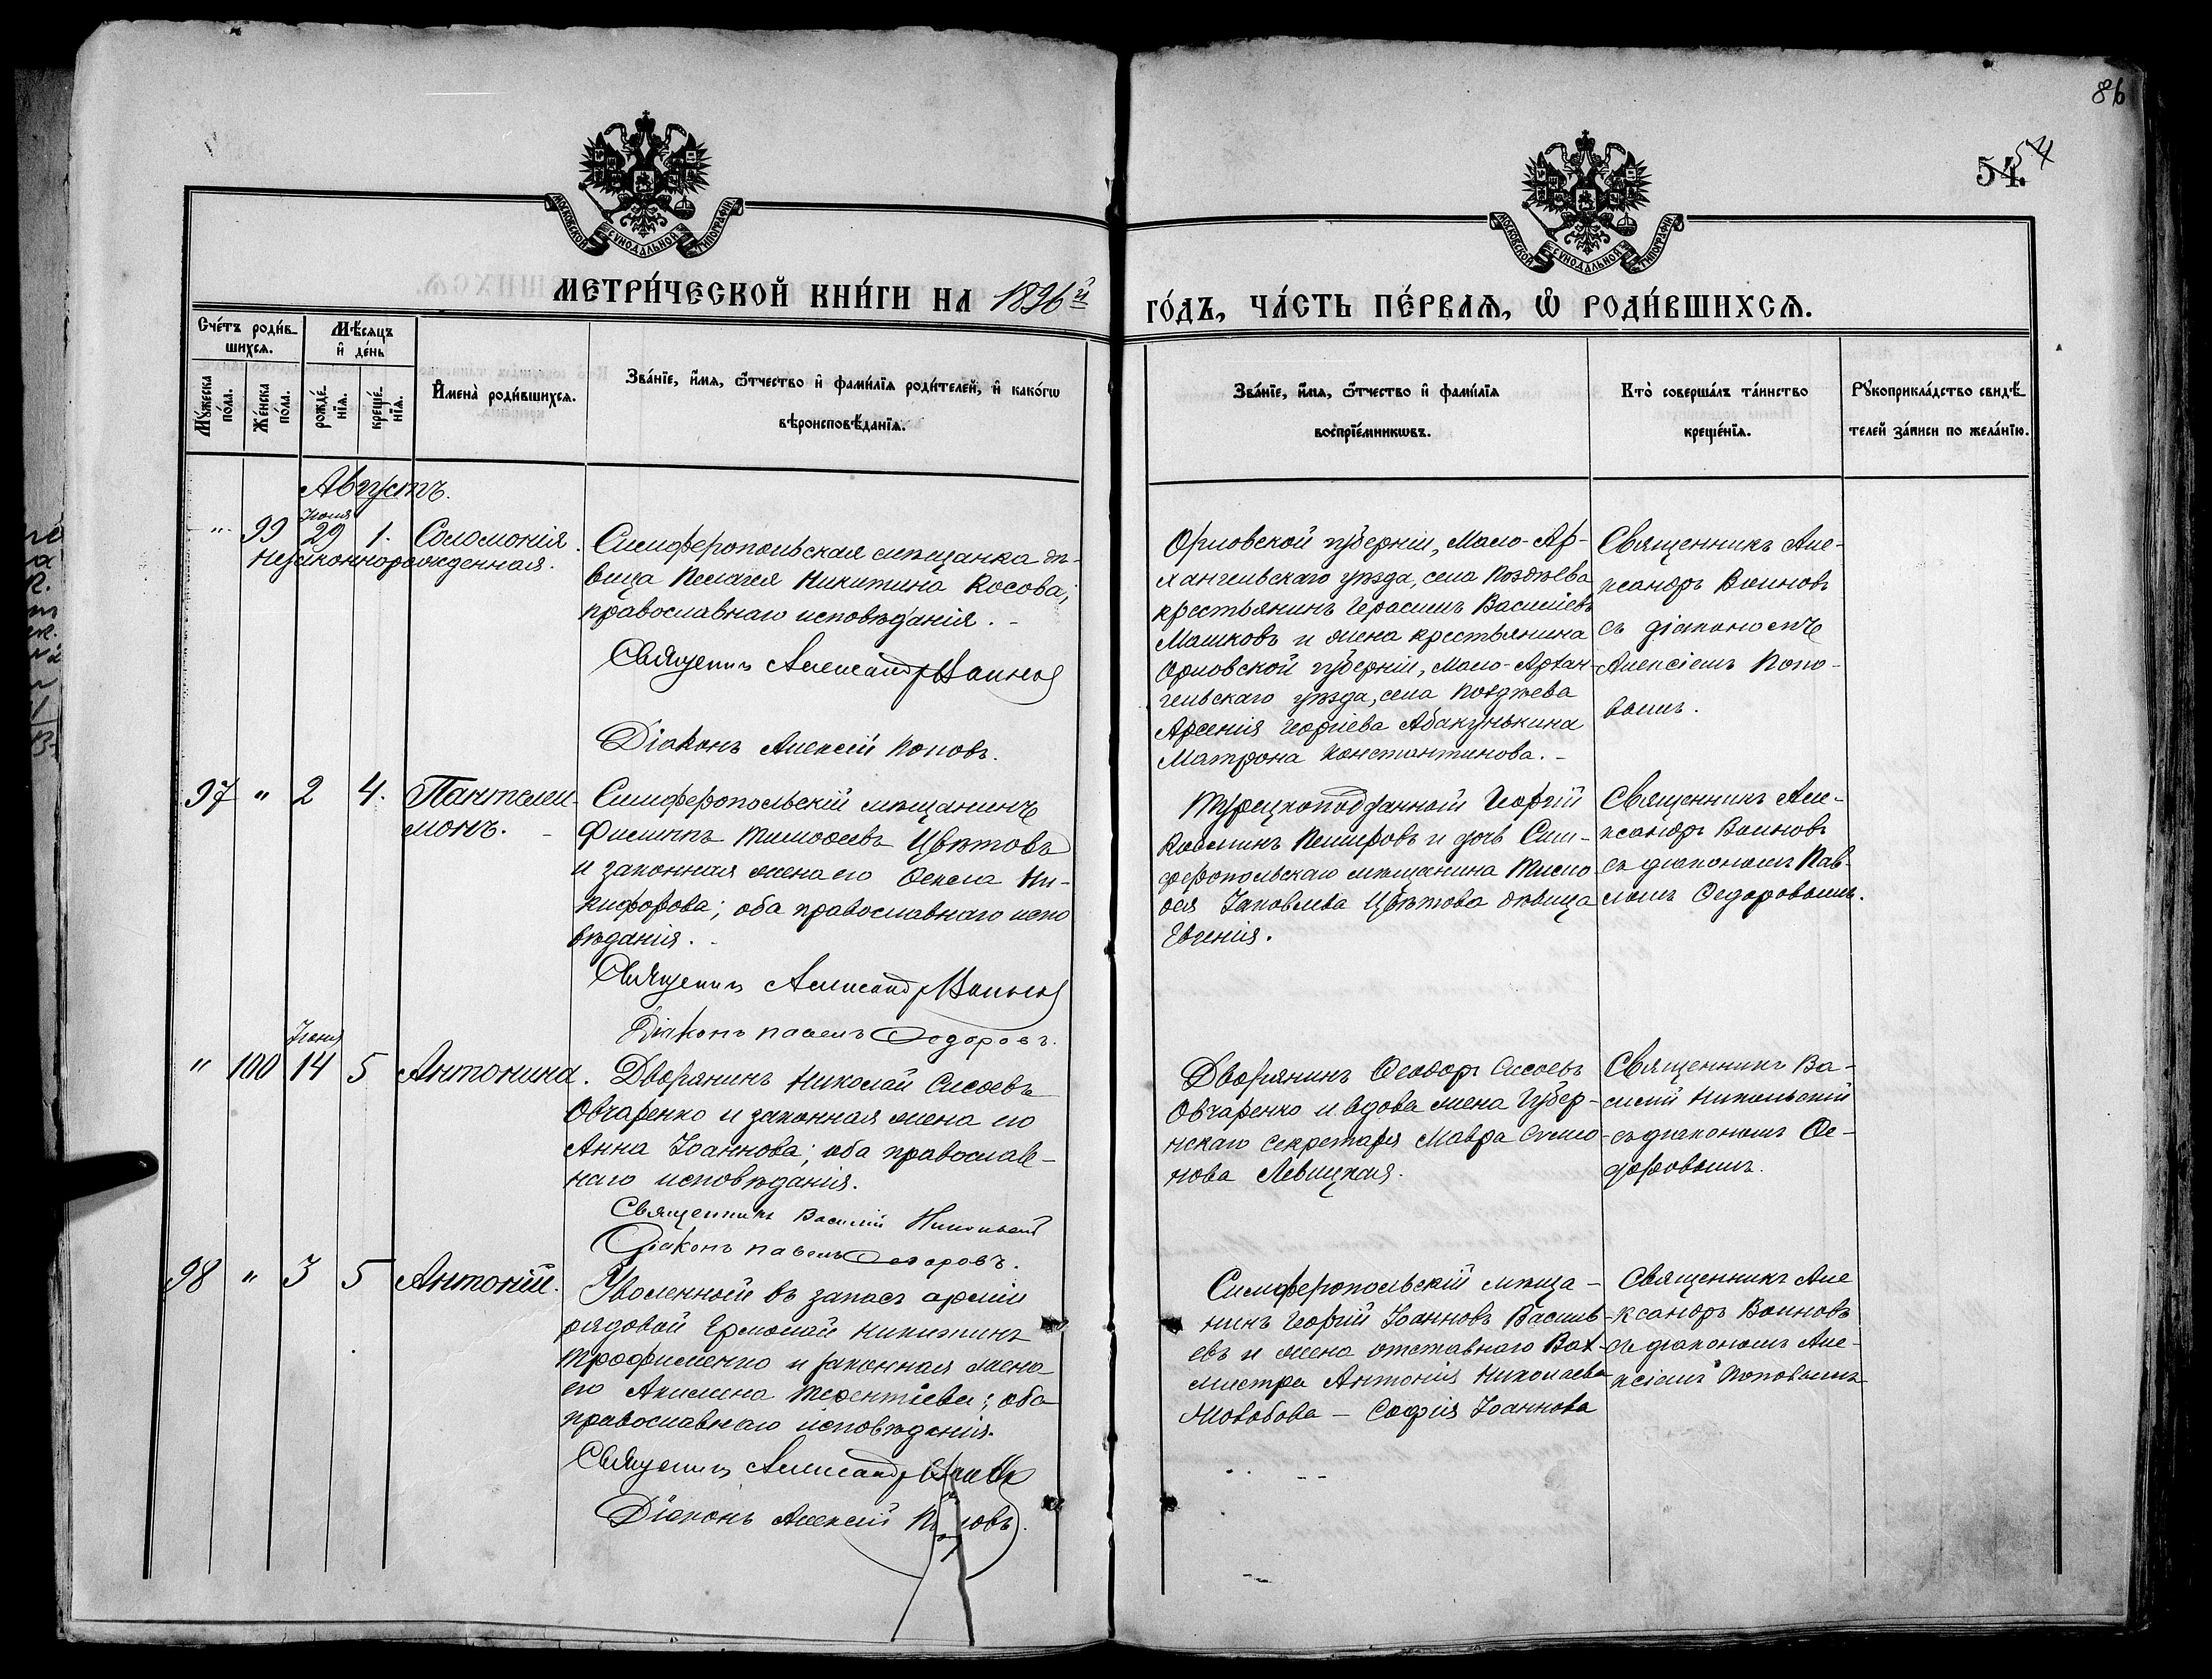 86
54.
54
МОСКОВСКОЙ СУНОДАЛЬНОЙ ТИПОГРАФІИ
МОСКОВСКОЙ СУНОДАЛЬНОЙ ТИПОГРАФІИ
МЕТРИ́ЧЕСКОЙ КНИ́ГИ НА 1896й
ГО́ДЪ, ЧА́СТЬ ПЕ́РВАѦ, Ѽ РОДИ́ВШИХСѦ.
Сче́тъ роди́в-
шихсѧ.
Мѹ́жеска по́ла.
Же́нска по́ла.
Мѣ́сѧцъ
и҆ де́нь
рожде́нїѧ.
креще́нїѧ.
И҆мена̀ роди́вшихсѧ.
Зва́нїе, и҆́мѧ, ѻ҆́тчество и҆ фами́лїѧ роди́телей, и҆ како́гѡ
вѣроисповѣ́данїѧ.
Зва́нїе, и҆́мѧ, ѻ҆́тчество и҆ фами́лїѧ
воспрїе́мникѡвъ.
Кто̀ соверша́лъ та́инство
креще́нїѧ.
Рѹкоприкла́дство свидѣ́-
телей за́писи по жела́нїю.
Августъ.
" 99 Июля 29 1. Соломонія.
Незаконнорожденная.
Симферопольская мѣщанка дѣ-
вица Пелагея Никитина Косова;
православнаго исповѣданія.
Священникъ Александръ Воиновъ
Діаконъ Алексій Поповъ.
Орловской губерніи, Мало-Ар-
хангельскаго уѣзда, села Позднѣева
крестьянинъ Герасимъ Василіевъ
Машковъ и жена крестьянина
Орловской губерніи, Мало-Архан-
гельскаго уѣзда, села
Арсенія Георгіева Абакунькина
Матрона Константинова.
Священникъ Але-
ксандръ Воиновъ
съ діакономъ
Алексіемъ Попо-
вымъ.
97 " 2 4. Пантелеи-
монъ.
Симферопольскій мѣщанинъ
Филиппъ Тимофеевъ Цвѣтовъ
и законная жена его Фекла Ни-
кифорова; оба православнаго испо
вѣданія.
Священникъ Александръ Воиновъ
Діаконъ Павелъ Ѳедоровъ.
Турецкоподданной Георгій
и дочь Сим-
феропольскаго мѣщанина Тимо
фея Іаковлева Цвѣтова дѣвица
Евгенія.
Священникъ Але-
ксандръ Воиновъ
съ діакономъ Пав-
ломъ Ѳедоровымъ.
" 100 Июня 14 5 Антонина.
Дворянинъ Николай Сисоевъ
Овчаренко и законная жена его
Анна Іоаннова; оба православ-
наго исповѣданія.
Священникъ Василій Никольскій
Діаконъ Павелъ Ѳедоровъ.
Дворянинъ Ѳеодоръ Сисоевъ
Овчаренко и вдова жена Губер-
нскаго секретаря Мавра Симео-
нова Левицкая.
Священникъ Ва-
силій Никольскій
съ діакономъ Ѳе-
доровымъ.
98 " 3 5 Антоній.
Уволенной въ запасъ арміи
рядовой Ермолай Никитинъ
Трофименко и законная жена
его Акилина Терентіева; оба
православнаго исповѣданія.
Священникъ Александръ Воиновъ
Діаконъ Алексій Поповъ.
Симферопольскій мѣща-
нинъ Георгій Іоанновъ Василь-
евъ и жена отставнаго Вах-
мистра Антонія Николаева
София Іоаннова
Священникъ Але
ксандръ Воиновъ
съ діакономъ Але-
ксіемъ Поповымъ